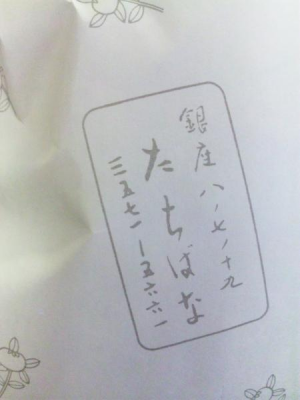 銀座八ノ七ノ十九
たちばな
三五七一ー五六六一